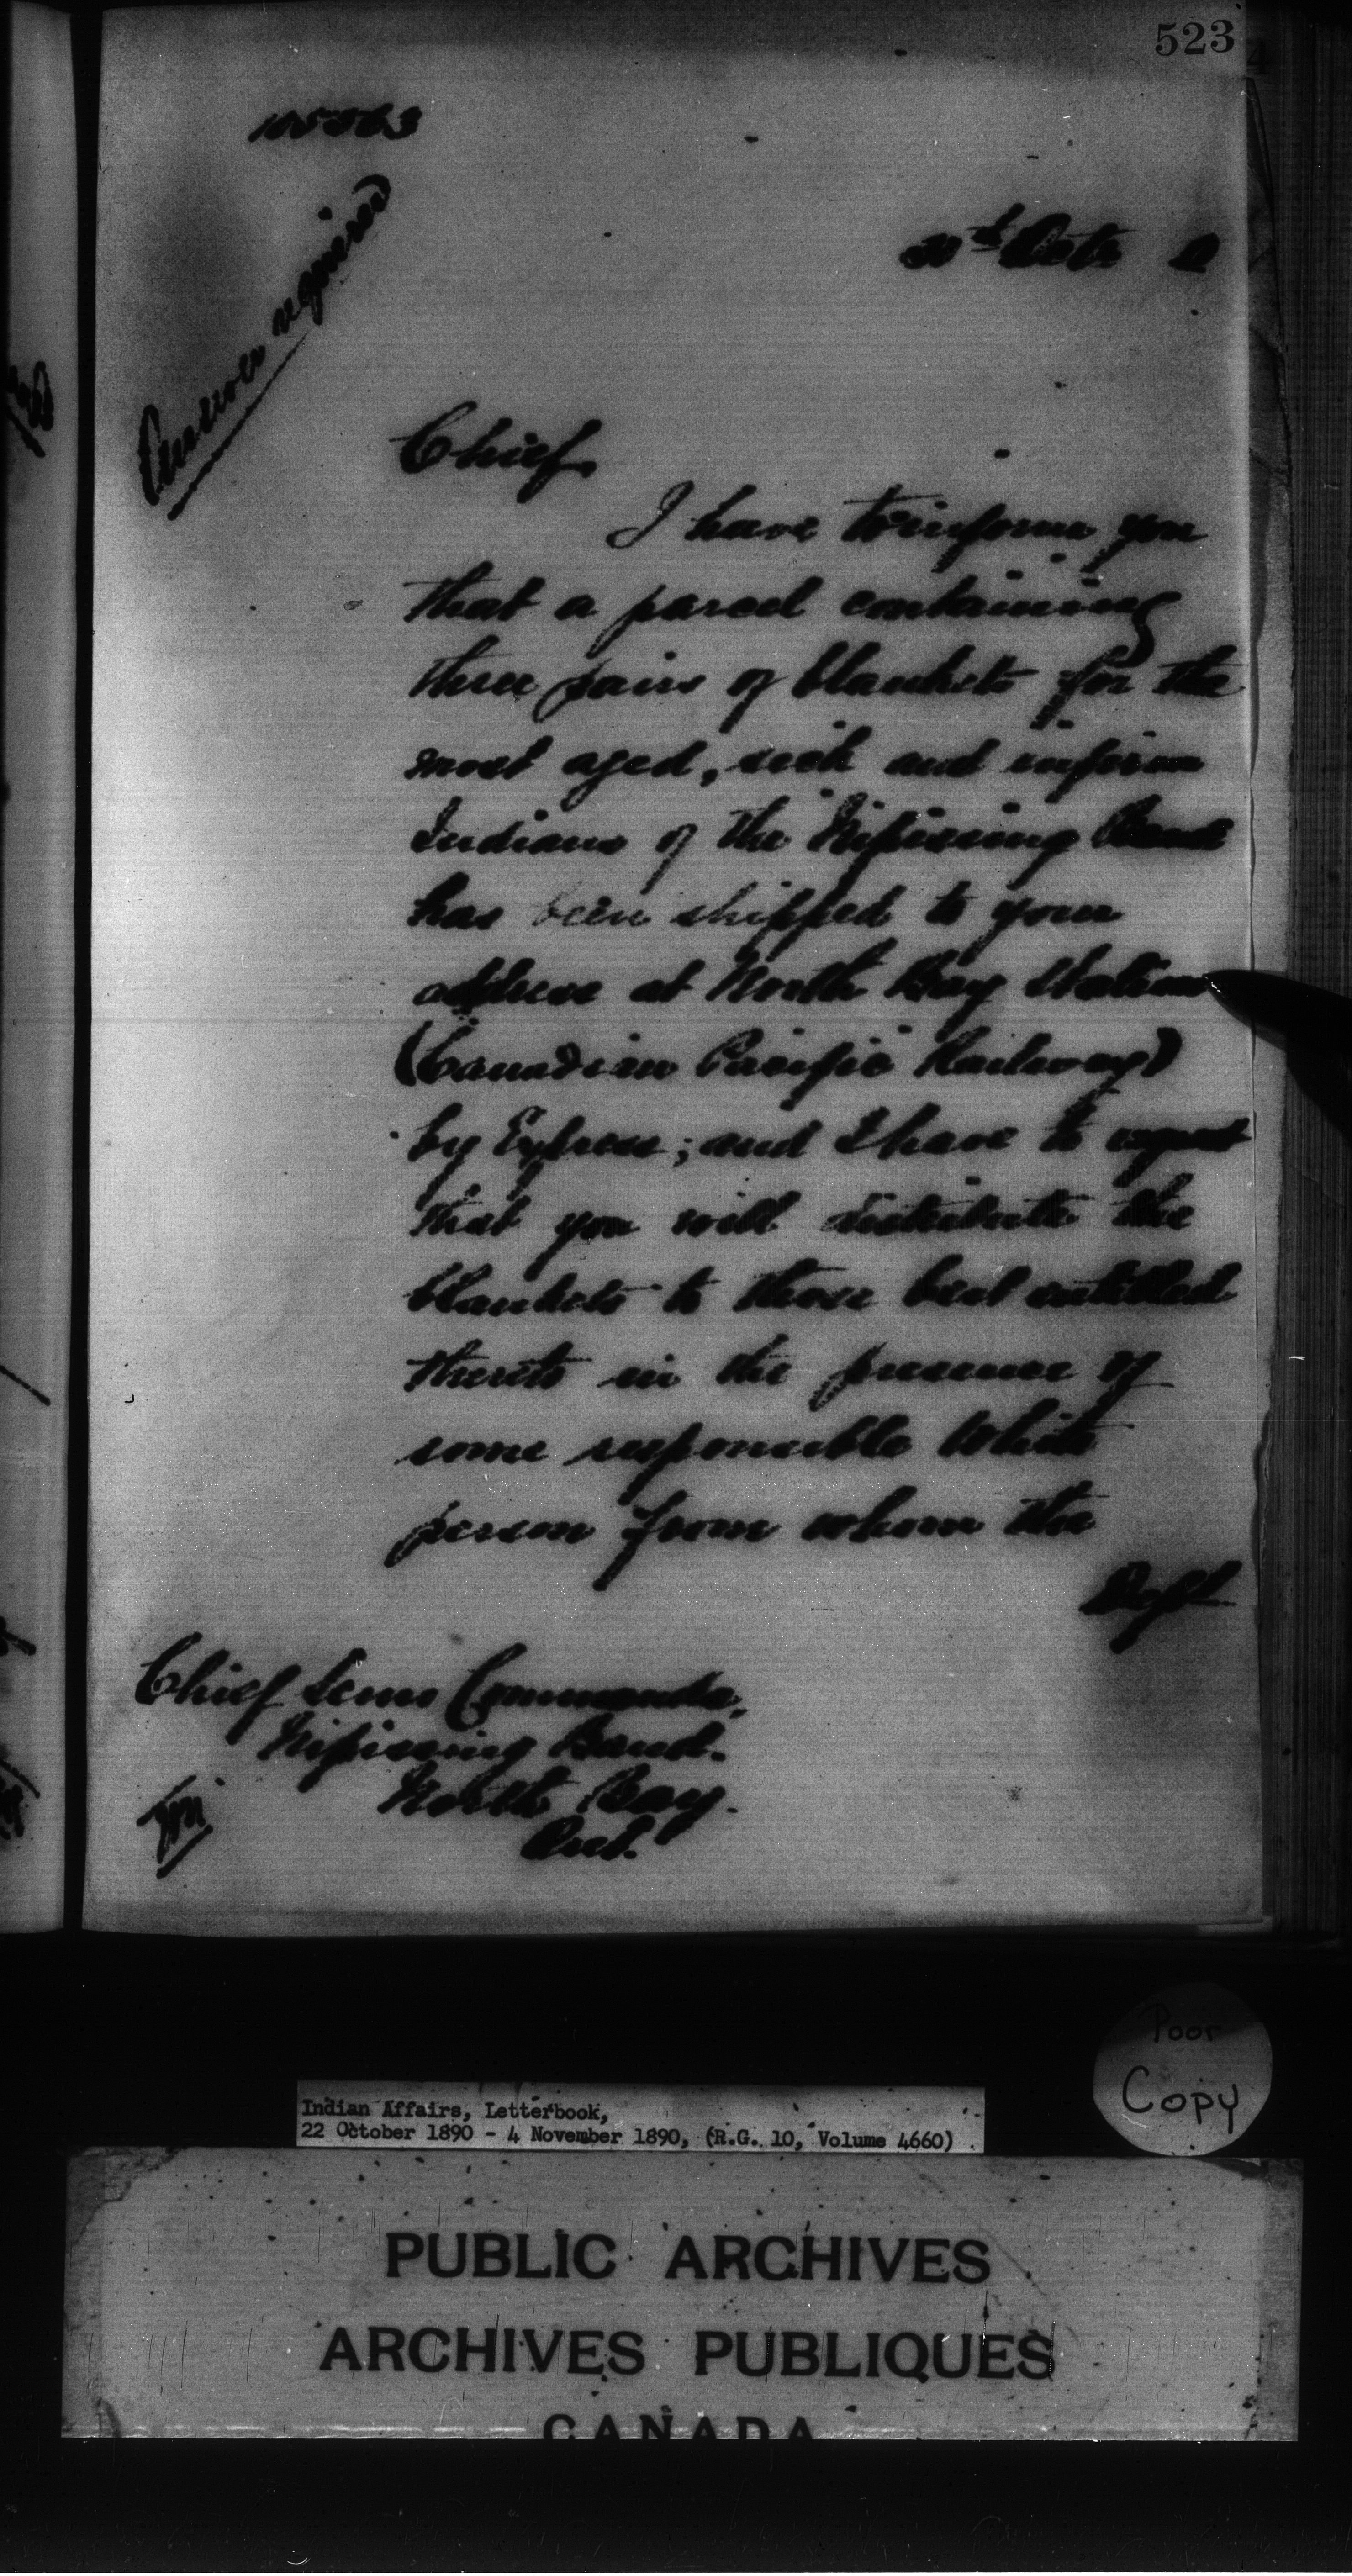 523
105563
Answer required
Octr 0
Chief,
I have to inform you
that a parcel containing
three pairs of blankets for the
most aged, sick and infirm
Indians of the Nipissing Band
has been shipped to your
address at North Bay Station
(Canadian Pacific Railway)
by Express; and I have to request
that you will distribute the
blankets to those best entitled
thereto in the presence of
some responsible White
person from whom the
Dept
Chief Commanda,
Nipissing Band.
North Bay.
Ont.
Poor
Copy
Indian Affairs, Letterbook,
22 October 1890 - 4 November 1890, (R.G. 10, Volume 4660)
PUBLIC ARCHIVES
ARCHIVES PUBLIQUES
CANADA